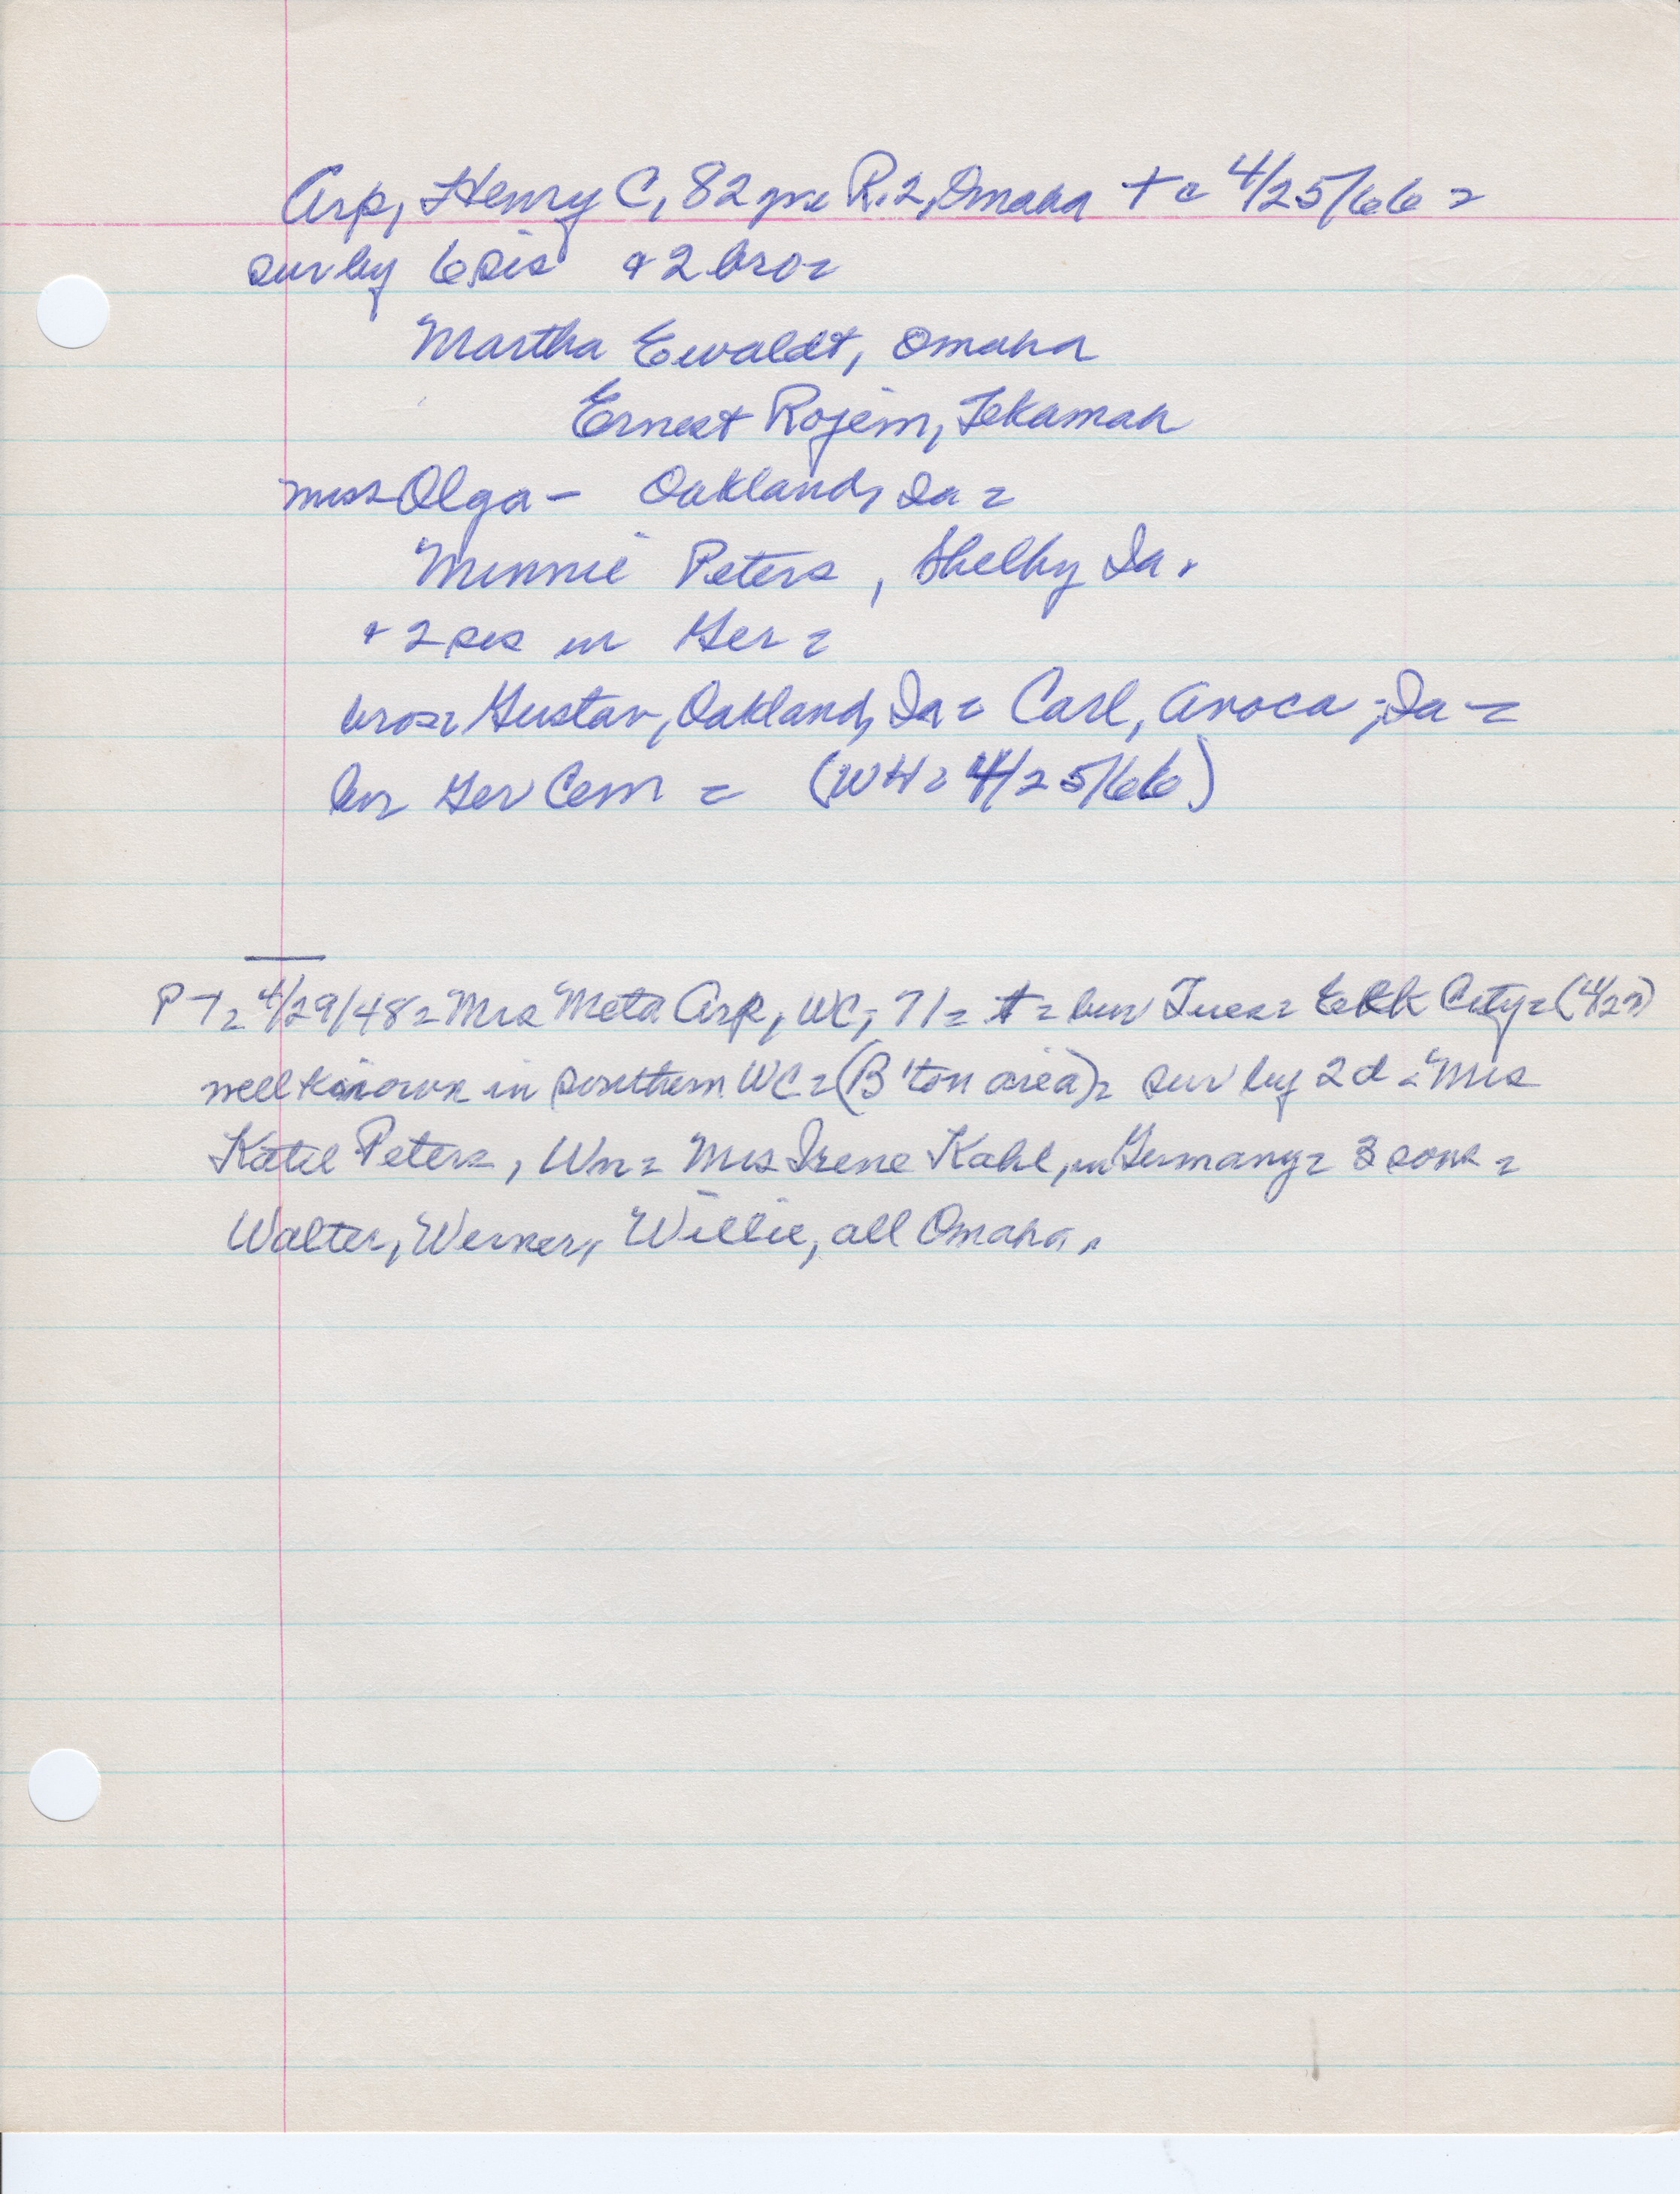 Arp, Henry C, 82 yrs R.2, Omaha + = 4/25/66 =
sur by 6 sis + 2 bro =
Martha Ewaldt, Omaha
Ernest Rojem, Tekamah
miss Olga - Oakland, Ia =
Minnie Peters, Shelby Ia.
+ 2 sis in Ger =
bros = Gustav, Oakland, Ia = Carl, Avoca, Ia =
bur Ger Cem = (WH = 4/25/66)
PT = 4/29/48 = Mrs Meta Arp, WC, 71 = + = bur Tues = Elk City = (4/27)
well known in southern WC = (B'ton area) = sur by 2 d = Mrs
Katie Peters, Wn = Mrs Irene Kahl, in Germany = 3 sons =
Walter, Werner, Willie, all Omaha.